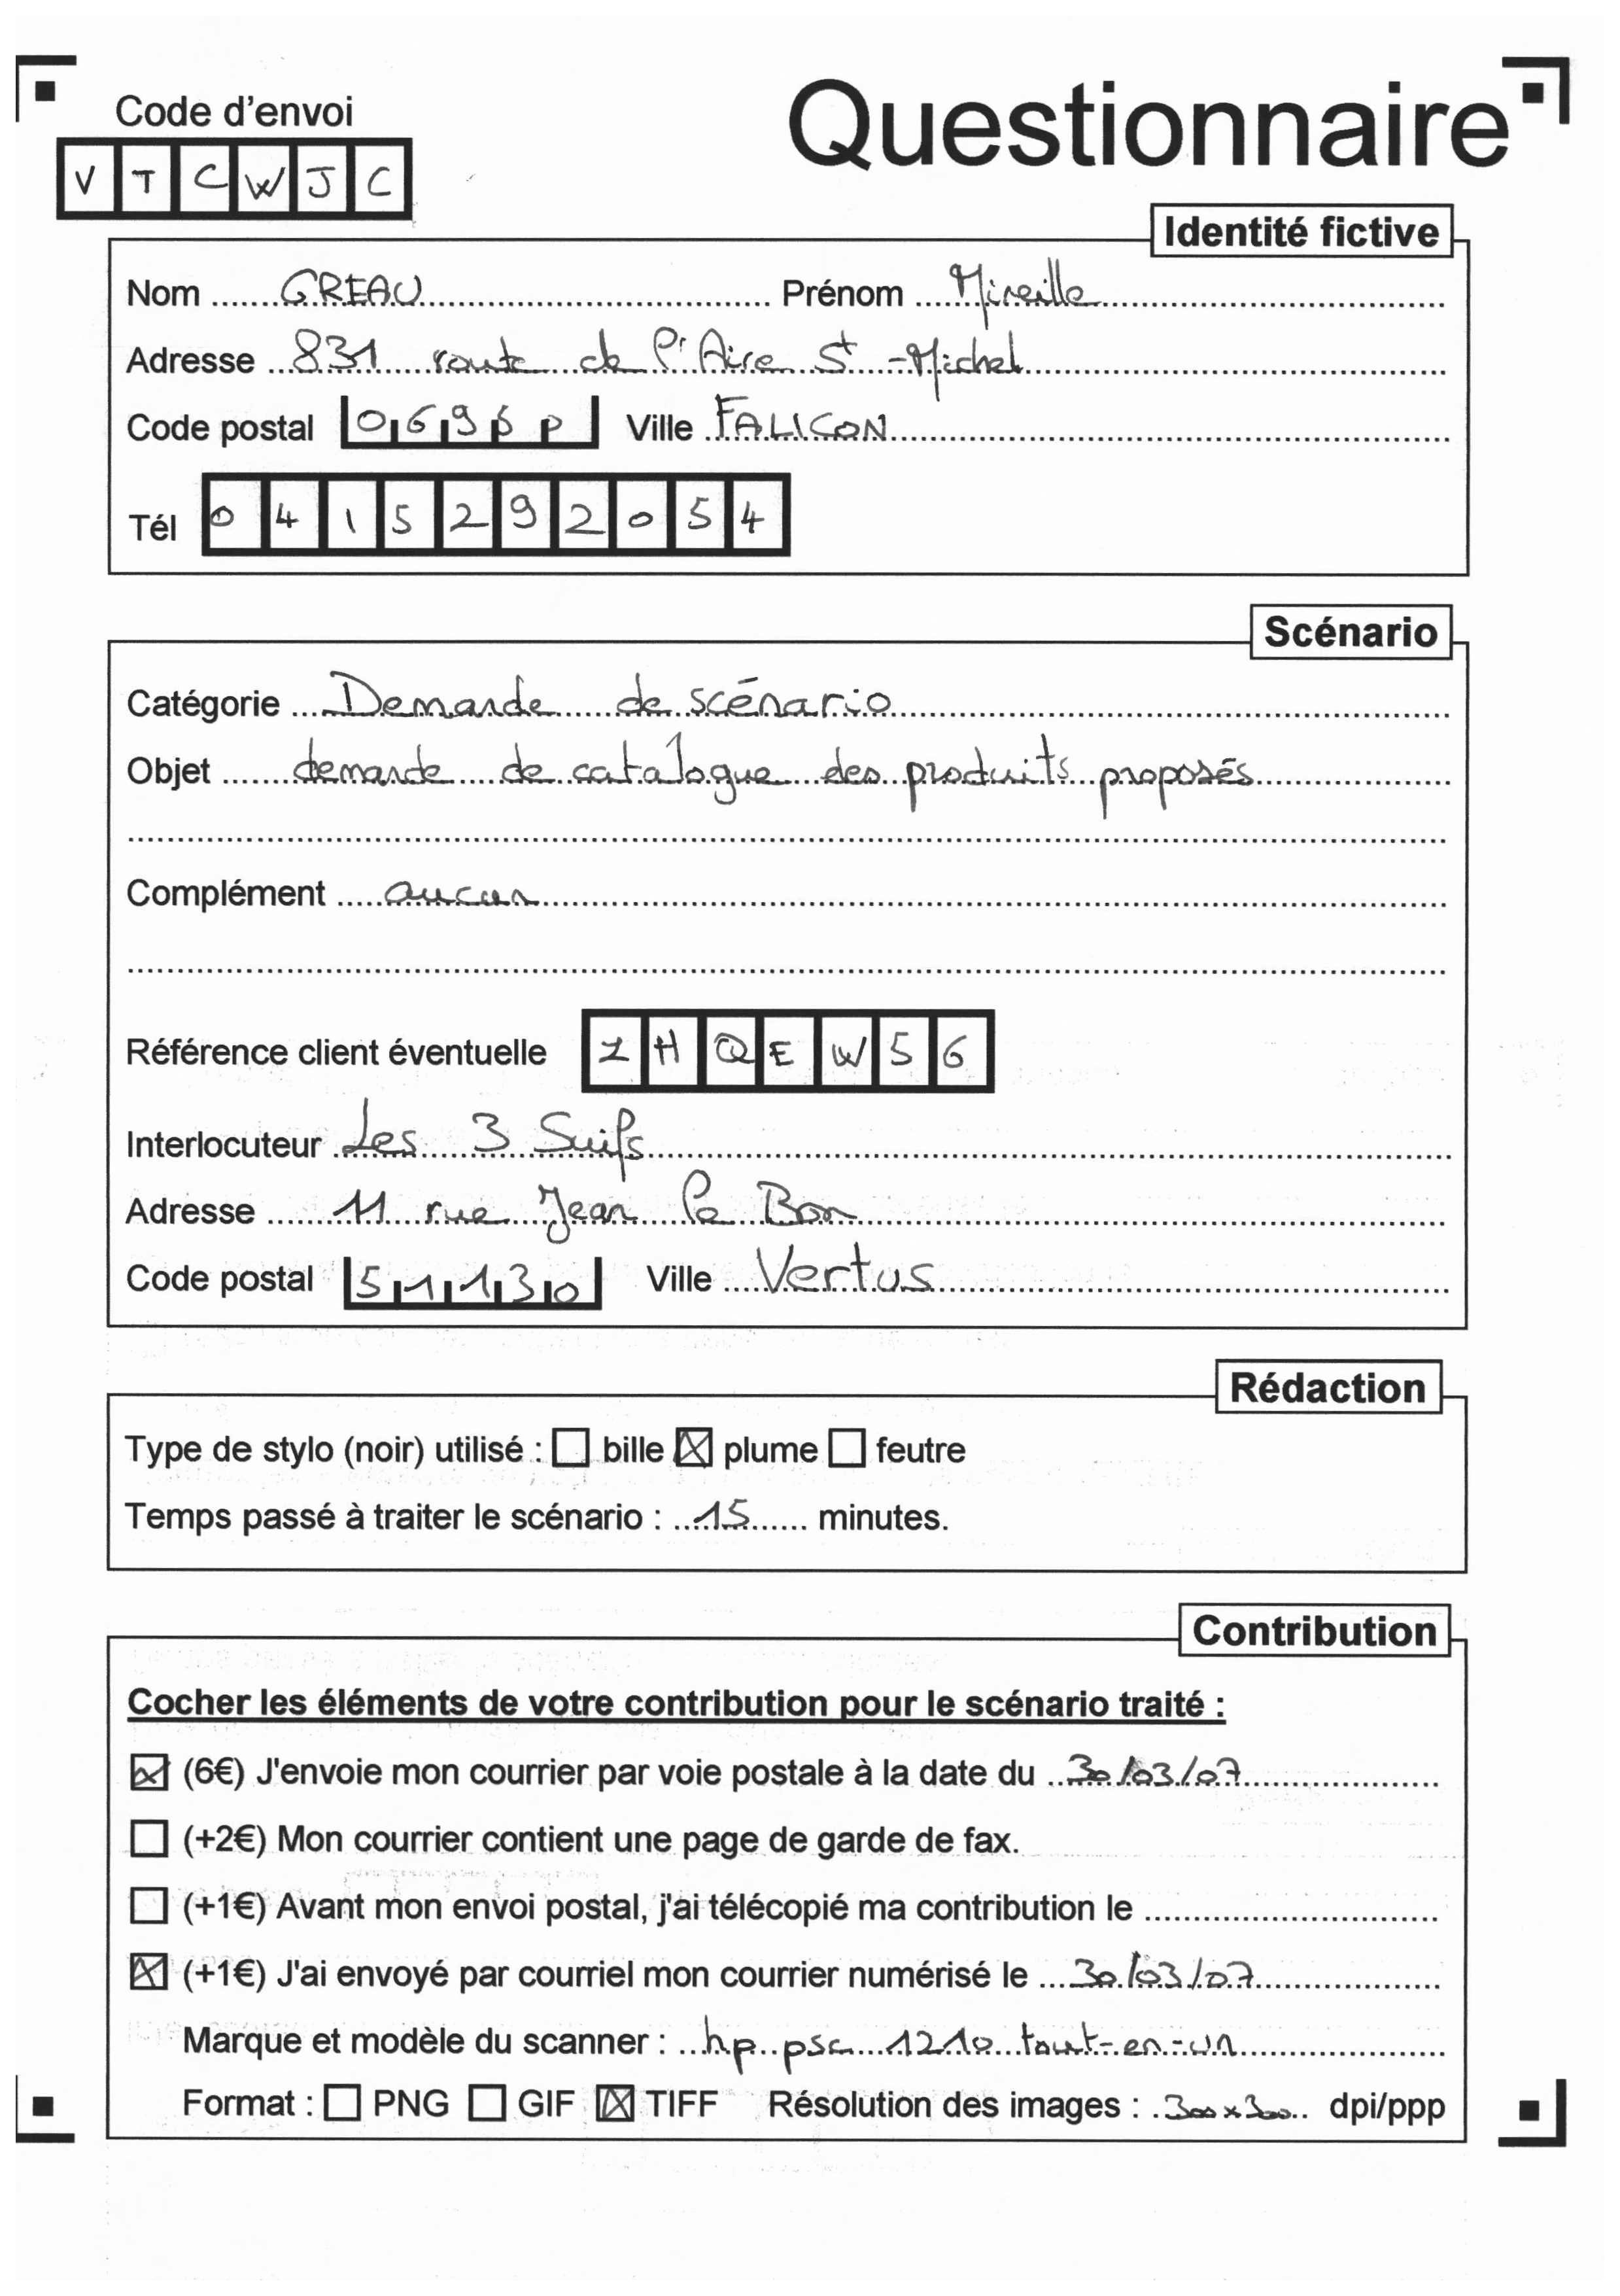 Code d'envoi
Questionnaire
V T C W J C
Identité fictive
Nom GREAU Prénom Mireille
Adresse 831 route de l'Aire St-Michel
Code postal Ville FALICON
Tél 0 4 1 5 2 9 2 0 5 4
Scénario
Catégorie Demande de scénario
Objet demande de catalogue des produits proposés
Complément aucun
Référence client éventuelle Z H Q E W 5 6
Interlocuteur Les 3 Suifs
Adresse 11 rue Jean Le Bon
Code postal 51130 Ville Vertus
Rédaction
Type de stylo (noir) utilisé : ☐ bille ☒ plume ☐ feutre
Temps passé à traiter le scénario : 15 minutes.
Contribution
Cocher les éléments de votre contribution pour le scénario traité :
☒ (6€) J'envoie mon courrier par voie postale à la date du 30/03/07
☐ (+2€) Mon courrier contient une page de garde de fax.
☐ (+1€) Avant mon envoi postal, j'ai télécopié ma contribution le
☒ (+1€) J'ai envoyé par courriel mon courrier numérisé le 30/03/07
Marque et modèle du scanner : hp psc 1210 tout-en-un
Format : ☐ PNG ☐ GIF ☒ TIFF Résolution des images : 300x300 dpi/ppp